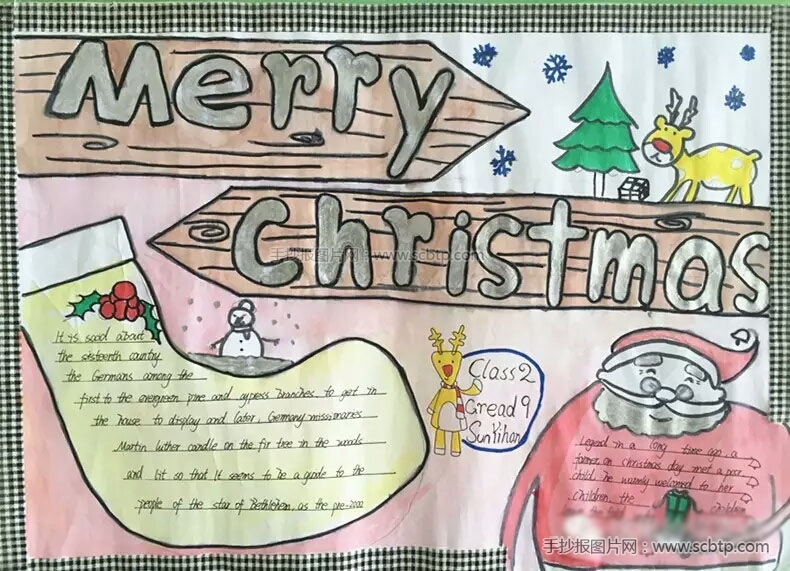 Merry
Christmas
手抄报图片网：www.scbtp.com
It is sood about
the sixteenth country
the Germans among the
first to the evergreen pine and cypress branches, to get in
the house to display and later, Germany missionaries
Martin Luther candle on the fir tree in the woods
and lit so that It seems to be a guide to the
people of the star of Bethlehem, as the pre-2000
Class 2
Gread 9
SunYihan
Legend in a long time ago, a
farmer, on christmas day met a poor
child, he warmly welcomed to her
children, the children
手抄报图片网：www.scbtp.com